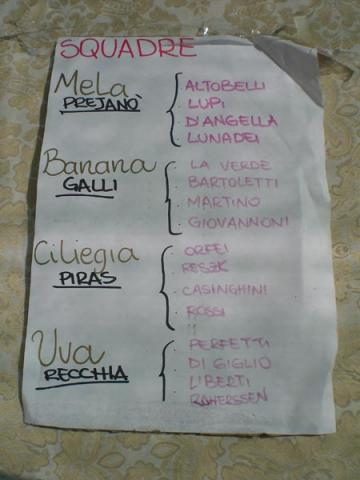 SQUADRE
Mela
PREJANÒ
ALTOBELLI
LUPI
D'ANGELLA
LUNADEI
Banana
GALLI
LA VERDE
BARTOLETTI
MARTINO
GIOVANNONI
Ciliegia
PIRAS
ORFEI
RESEK
CASINGHINI
ROSSI
Uva
RECCHIA
PERFETTI
DI GIGLIO
LIBERTI